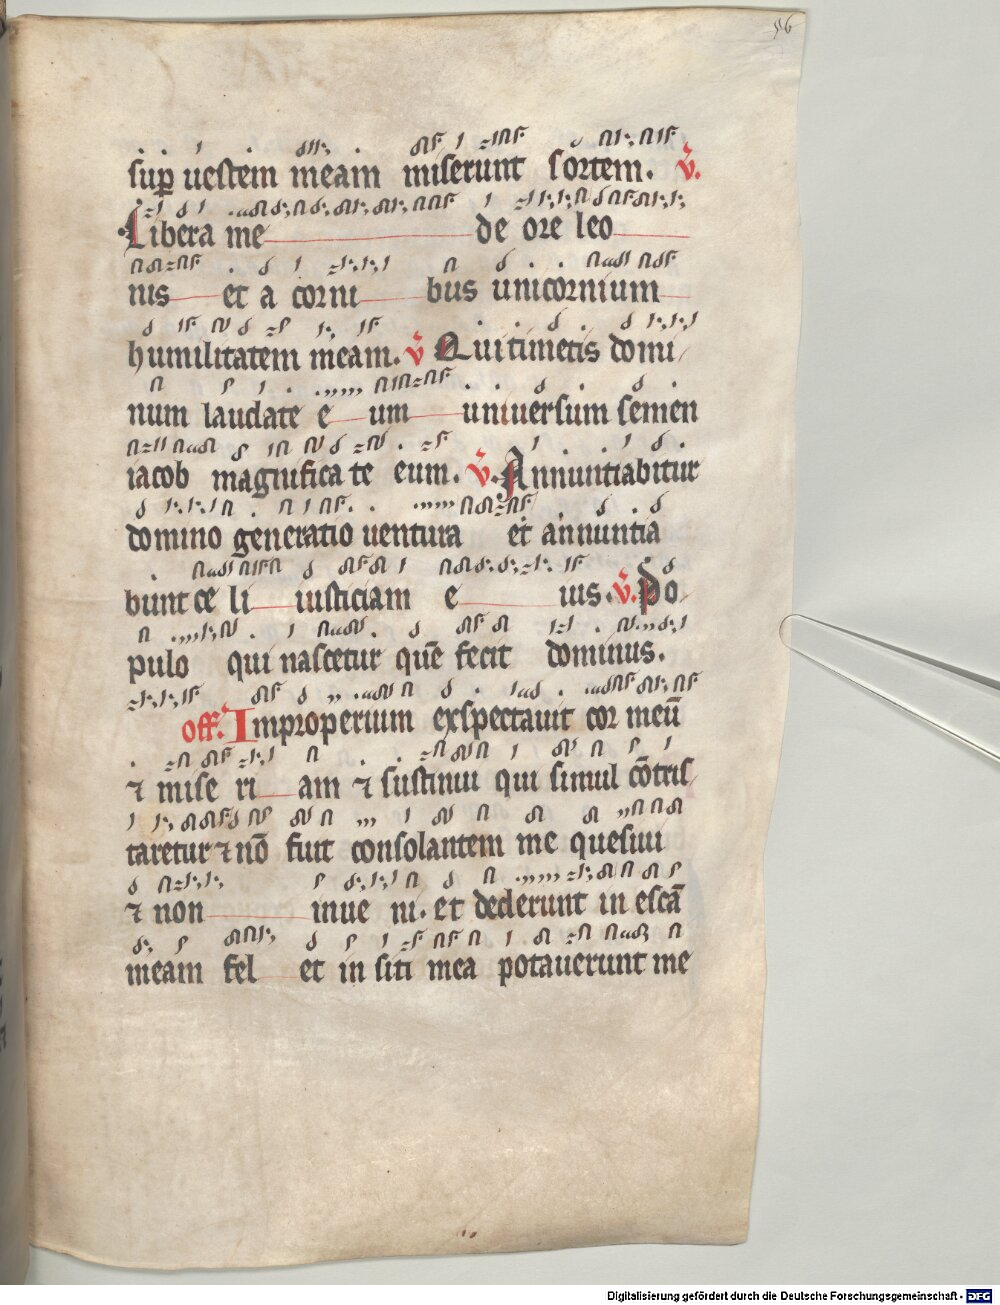 56
sup uestem meam miserunt sortem. v̄.
Libera me de ore leo
nis et a corni bus unicornium
humilitatem meam. v̄ Qui timetis domi
num laudate e um uniuersum semen
iacob magnificate eum. v̄. Annuntiabitur
domino generatio uentura et annuntia
bunt ce li iusticiam e ius. v̄. Po
pulo qui nascetur quē fecit dominus.
off. Improperium exspectauit cor meū
⁊ mise ri am ⁊ sustinui qui simul cōtris
taretur ⁊ nō fuit consolantem me quesiui
⁊ non inue ni. et dederunt in escā
meam fel et in siti mea potauerunt me
Digitalisierung gefördert durch die Deutsche Forschungsgemeinschaft - DFG